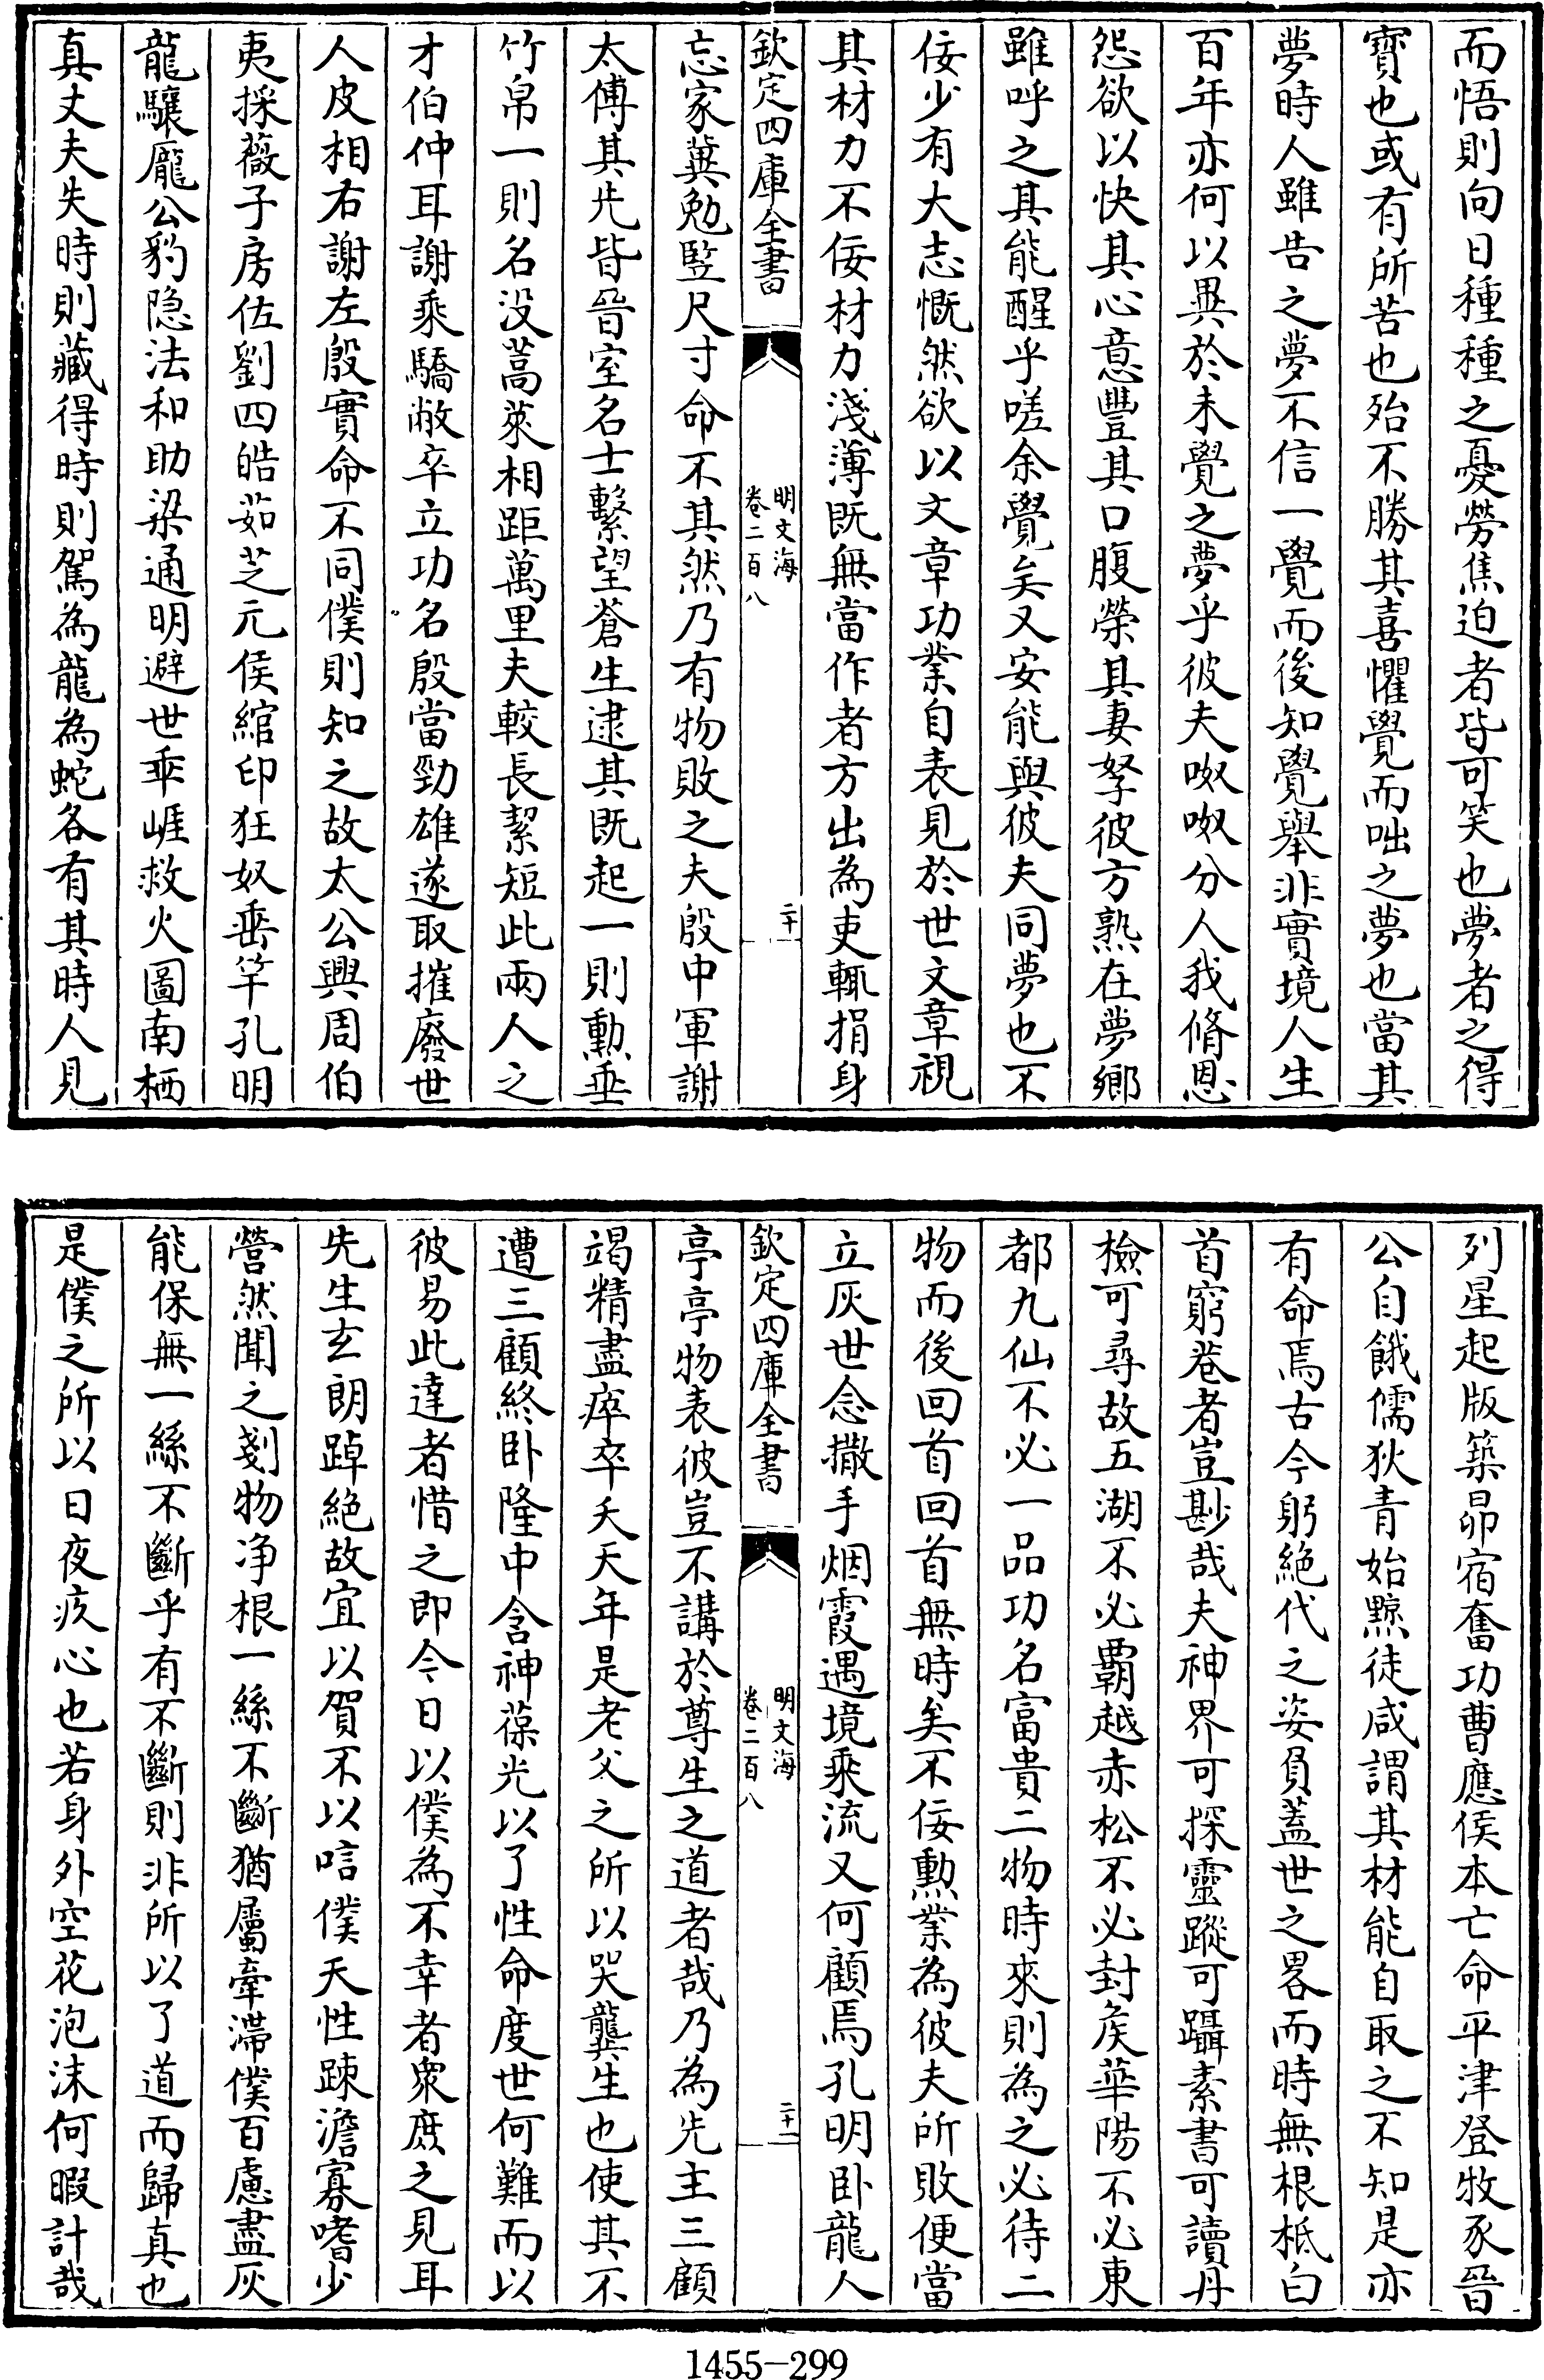 而悟則向日種種之憂勞焦迫者皆可笑也夢者之得
寶也或有所苦也殆不勝其喜懼覺而咄之夢也當其
夢時人雖告之夢不信一覺而後知覺舉非實境人生
百年亦何以異於未覺之夢乎彼夫呶呶分人我脩恩
怨欲以快其心意豐其口腹榮其妻孥彼方熟在夢鄉
雖呼之其能醒乎嗟余覺矣又安能與彼夫同夢也不
佞少有大志慨然欲以文章功業自表見於世文章視
其材力不佞材力淺薄既無當作者方出為吏輒捐身
欽定四庫全書
明文海
卷二百八
二十
忘家冀勉豎尺寸命不其然乃有物敗之夫殷中軍謝
太傅其先皆晉室名士繫望蒼生逮其既起一則勲垂
竹帛一則名没蒿萊相距萬里夫較長絜短此兩人之
才伯仲耳謝乘驕敝卒立功名殷當勁雄遂取摧廢世
人皮相右謝左殷實命不同僕則知之故太公興周伯
夷採薇子房佐劉四皓茹芝元侯綰印狂奴垂竿孔明
龍驤龐公豹隐法和助梁通明避世乖崖救火圖南栖
真丈夫失時則藏得時則駕為龍為蛇各有其時人見
列星起版築昴宿奮功曹應侯本亡命平津登牧豕晉
公自餓儒狄青始黥徒咸謂其材能自取之不知是亦
有命焉古今躬絶代之姿負蓋世之畧而時無根柢白
首窮巷者豈尠哉夫神界可探靈蹤可躡素書可讀丹
檢可尋故五湖不必覇越赤松不必封矦華陽不必東
都九仙不必一品功名富貴二物時來則為之必待二
物而後回首回首無時矣不佞勲業為彼夫所敗便當
立灰世念撒手烟霞遇境乘流又何顧焉孔明卧龍人
欽定四庫全書
明文海
卷二百八
二十一
亭亭物表彼豈不講於尊生之道者哉乃為先主三顧
竭精盡瘁卒夭天年是老父之所以哭龔生也使其不
遭三顧終卧隆中含神葆光以了性命度世何難而以
彼易此達者惜之即今日以僕為不幸者衆庶之見耳
先生玄朗踔絶故宜以賀不以唁僕天性踈澹寡嗜少
營然聞之剗物净根一絲不斷猶屬牽滯僕百慮盡灰
能保無一絲不斷乎有不斷則非所以了道而歸真也
是僕之所以日夜疚心也若身外空花泡沫何暇計哉
1455-299